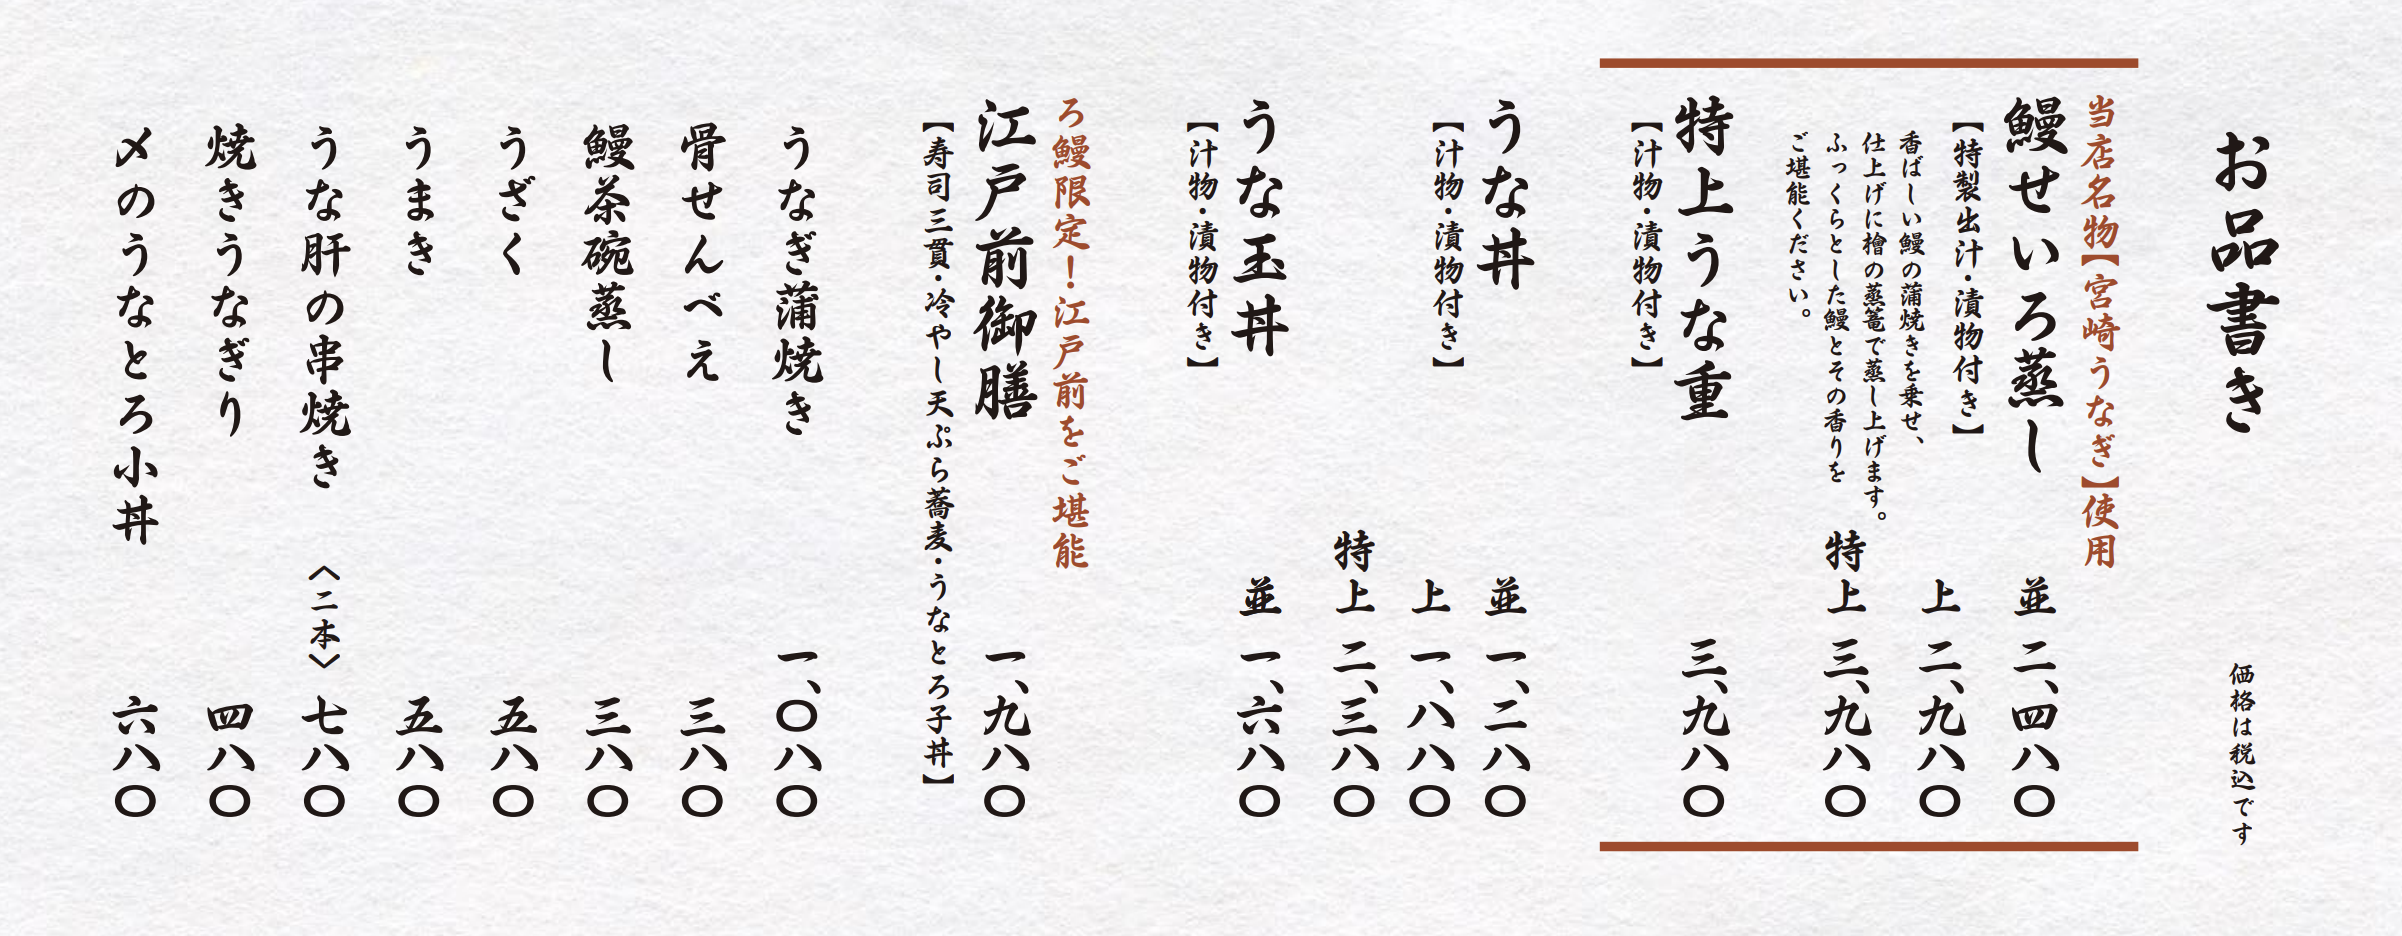 お品書き
価格は税込です
当店名物【宮崎うなぎ】使用
鰻せいろ蒸し
並 二、四八〇
【特製出汁・漬物付き】
上 二、九八〇
香ばしい鰻の蒲焼きを乗せ、
仕上げに檜の蒸篭で蒸し上げます。
ふっくらとした鰻とその香りを
ご堪能ください。
特上 三、九八〇
特上うな重
三、九八〇
【汁物・漬物付き】
うな丼
並 一、二八〇
【汁物・漬物付き】
上 一、八八〇
特上 二、三八〇
うな玉丼
並 一、六八〇
【汁物・漬物付き】
ろ鰻限定！江戸前をご堪能
江戸前御膳
一、九八〇
【寿司三貫・冷やし天ぷら蕎麦・うなとろ子丼】
うなぎ蒲焼き 一、〇八〇
骨せんべえ 三八〇
鰻茶碗蒸し 三八〇
うざく 五八〇
うまき 五八〇
うな肝の串焼き 〈二本〉 七八〇
焼きうなぎり 四八〇
〆のうなとろ小丼 六八〇